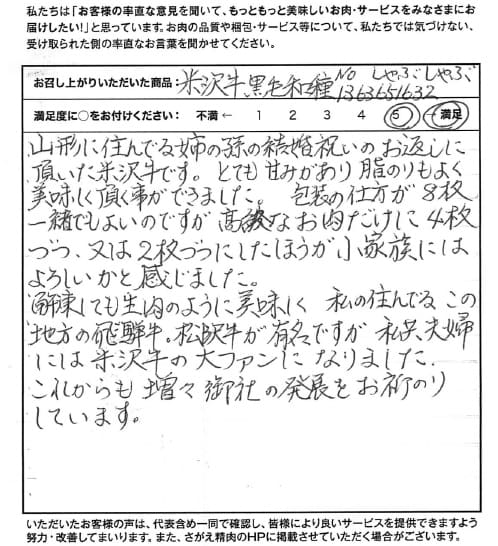 私たちは「お客様の率直な意見を聞いて、もっともっと美味しいお肉・サービスをみなさまにお
届けしたい!」と思っています。お肉の品質や梱包・サービス等について、私たちでは気づけない、
受け取られた側の率直なお言葉を聞かせてください。
お召し上がりいただいた商品: 米沢牛黒毛和種 No 1363651632 しゃぶしゃぶ
満足度に○をお付けください: 不満 ← 1 2 3 4 5 → 満足
山形に住んでる姉の孫の結婚祝いのお返しに
頂いた米沢牛です。とても甘みがあり脂のりもよく
美味しく頂く事ができました。 包装の仕方が8枚
一緒でもよいのですが高級なお肉だけに4枚
づつ、又は2枚づつにしたほうが小家族には
よろしいかと感じました。
解凍しても生肉のように美味しく 私の住んでる この
地方の飛騨牛。松阪牛が有名ですが 私共夫婦
には米沢牛の大ファンになりました.
これからも増々御社の発展をお祈のり
しています。
いただいたお客様の声は、代表含め一同で確認し、皆様により良いサービスを提供できますよう
努力・改善してまいります。また、さがえ精肉のHPに掲載させていただく場合がございます。